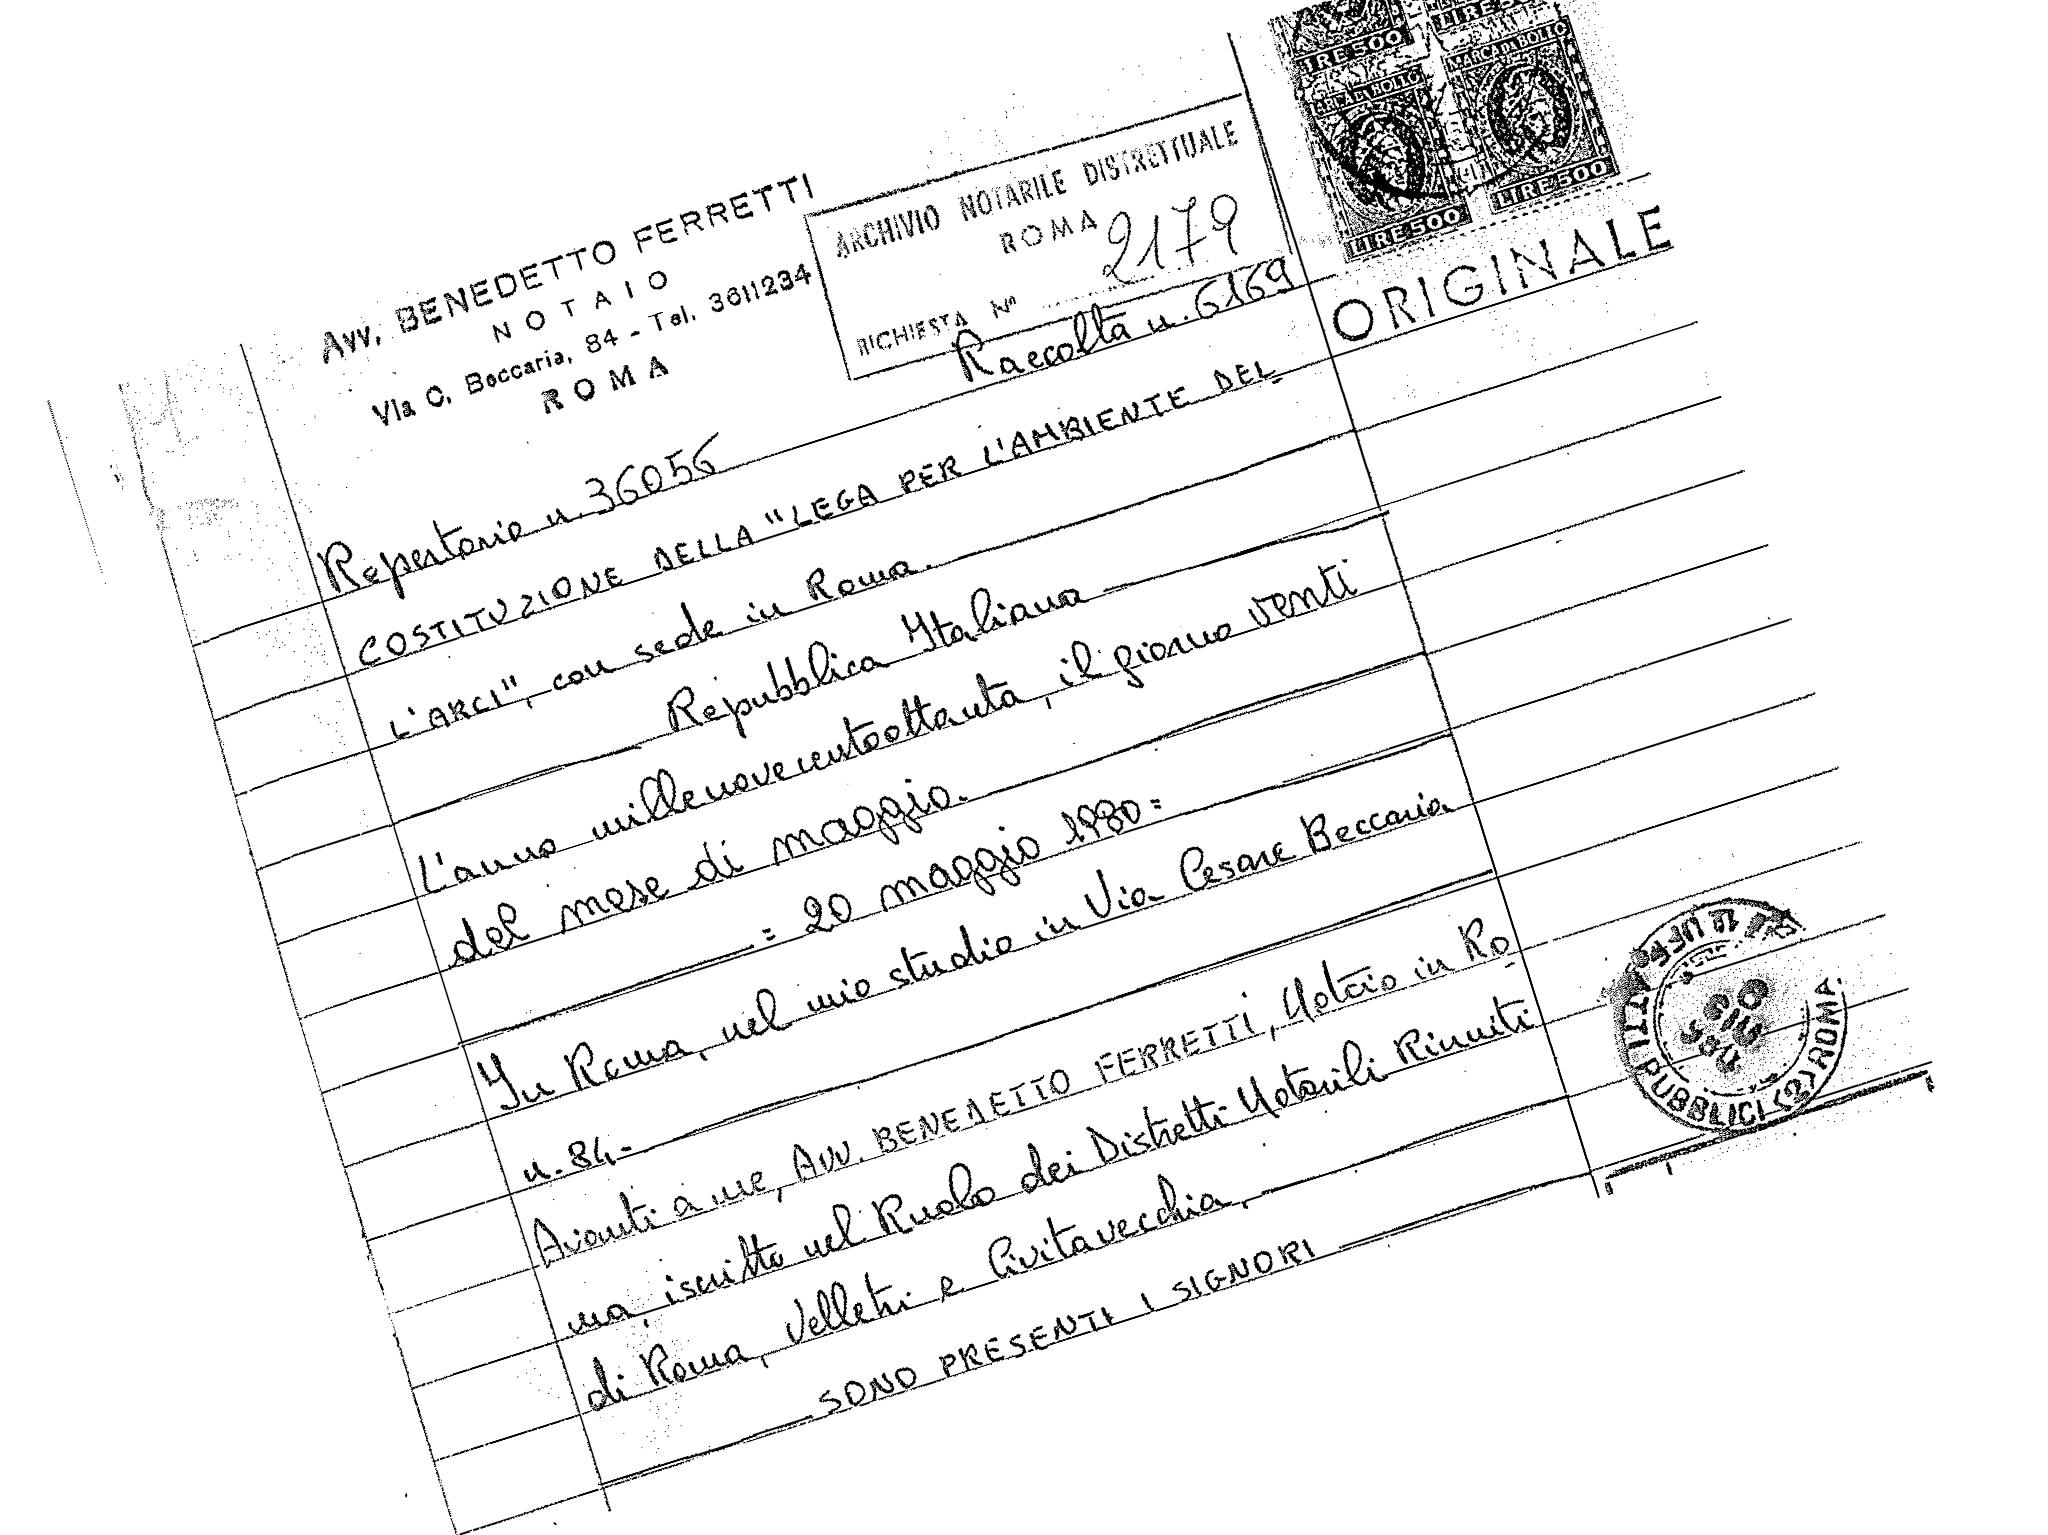 LIRE 500
LIRE 500
MARCA DA BOLLO
MARCA DA BOLLO
LIRE 500
LIRE 500
ORIGINALE
Avv. BENEDETTO FERRETTI
NOTAIO
Via C. Beccaria, 84 - Tel. 3611234
ROMA
ARCHIVIO NOTARILE DISTRETTUALE
ROMA
RICHIESTA N° 2179
Repertorio n. 36056 Raccolta n. 6169
COSTITUZIONE DELLA "LEGA PER L'AMBIENTE DEL
L'ARCI", con sede in Roma.
Repubblica Italiana
L'anno millenovecentoottanta, il giorno venti
del mese di maggio.
= 20 maggio 1980 =
In Roma, nel mio studio in Via Cesare Beccaria
n. 84.-
Avanti a me, Avv. BENEDETTO FERRETTI, Notaio in Ro
ma, iscritto nel Ruolo dei Distretti Notarili Riuniti
di Roma, Velletri e Civitavecchia,
SONO PRESENTI I SIGNORI
ATTI PUBBLICI (2) ROMA